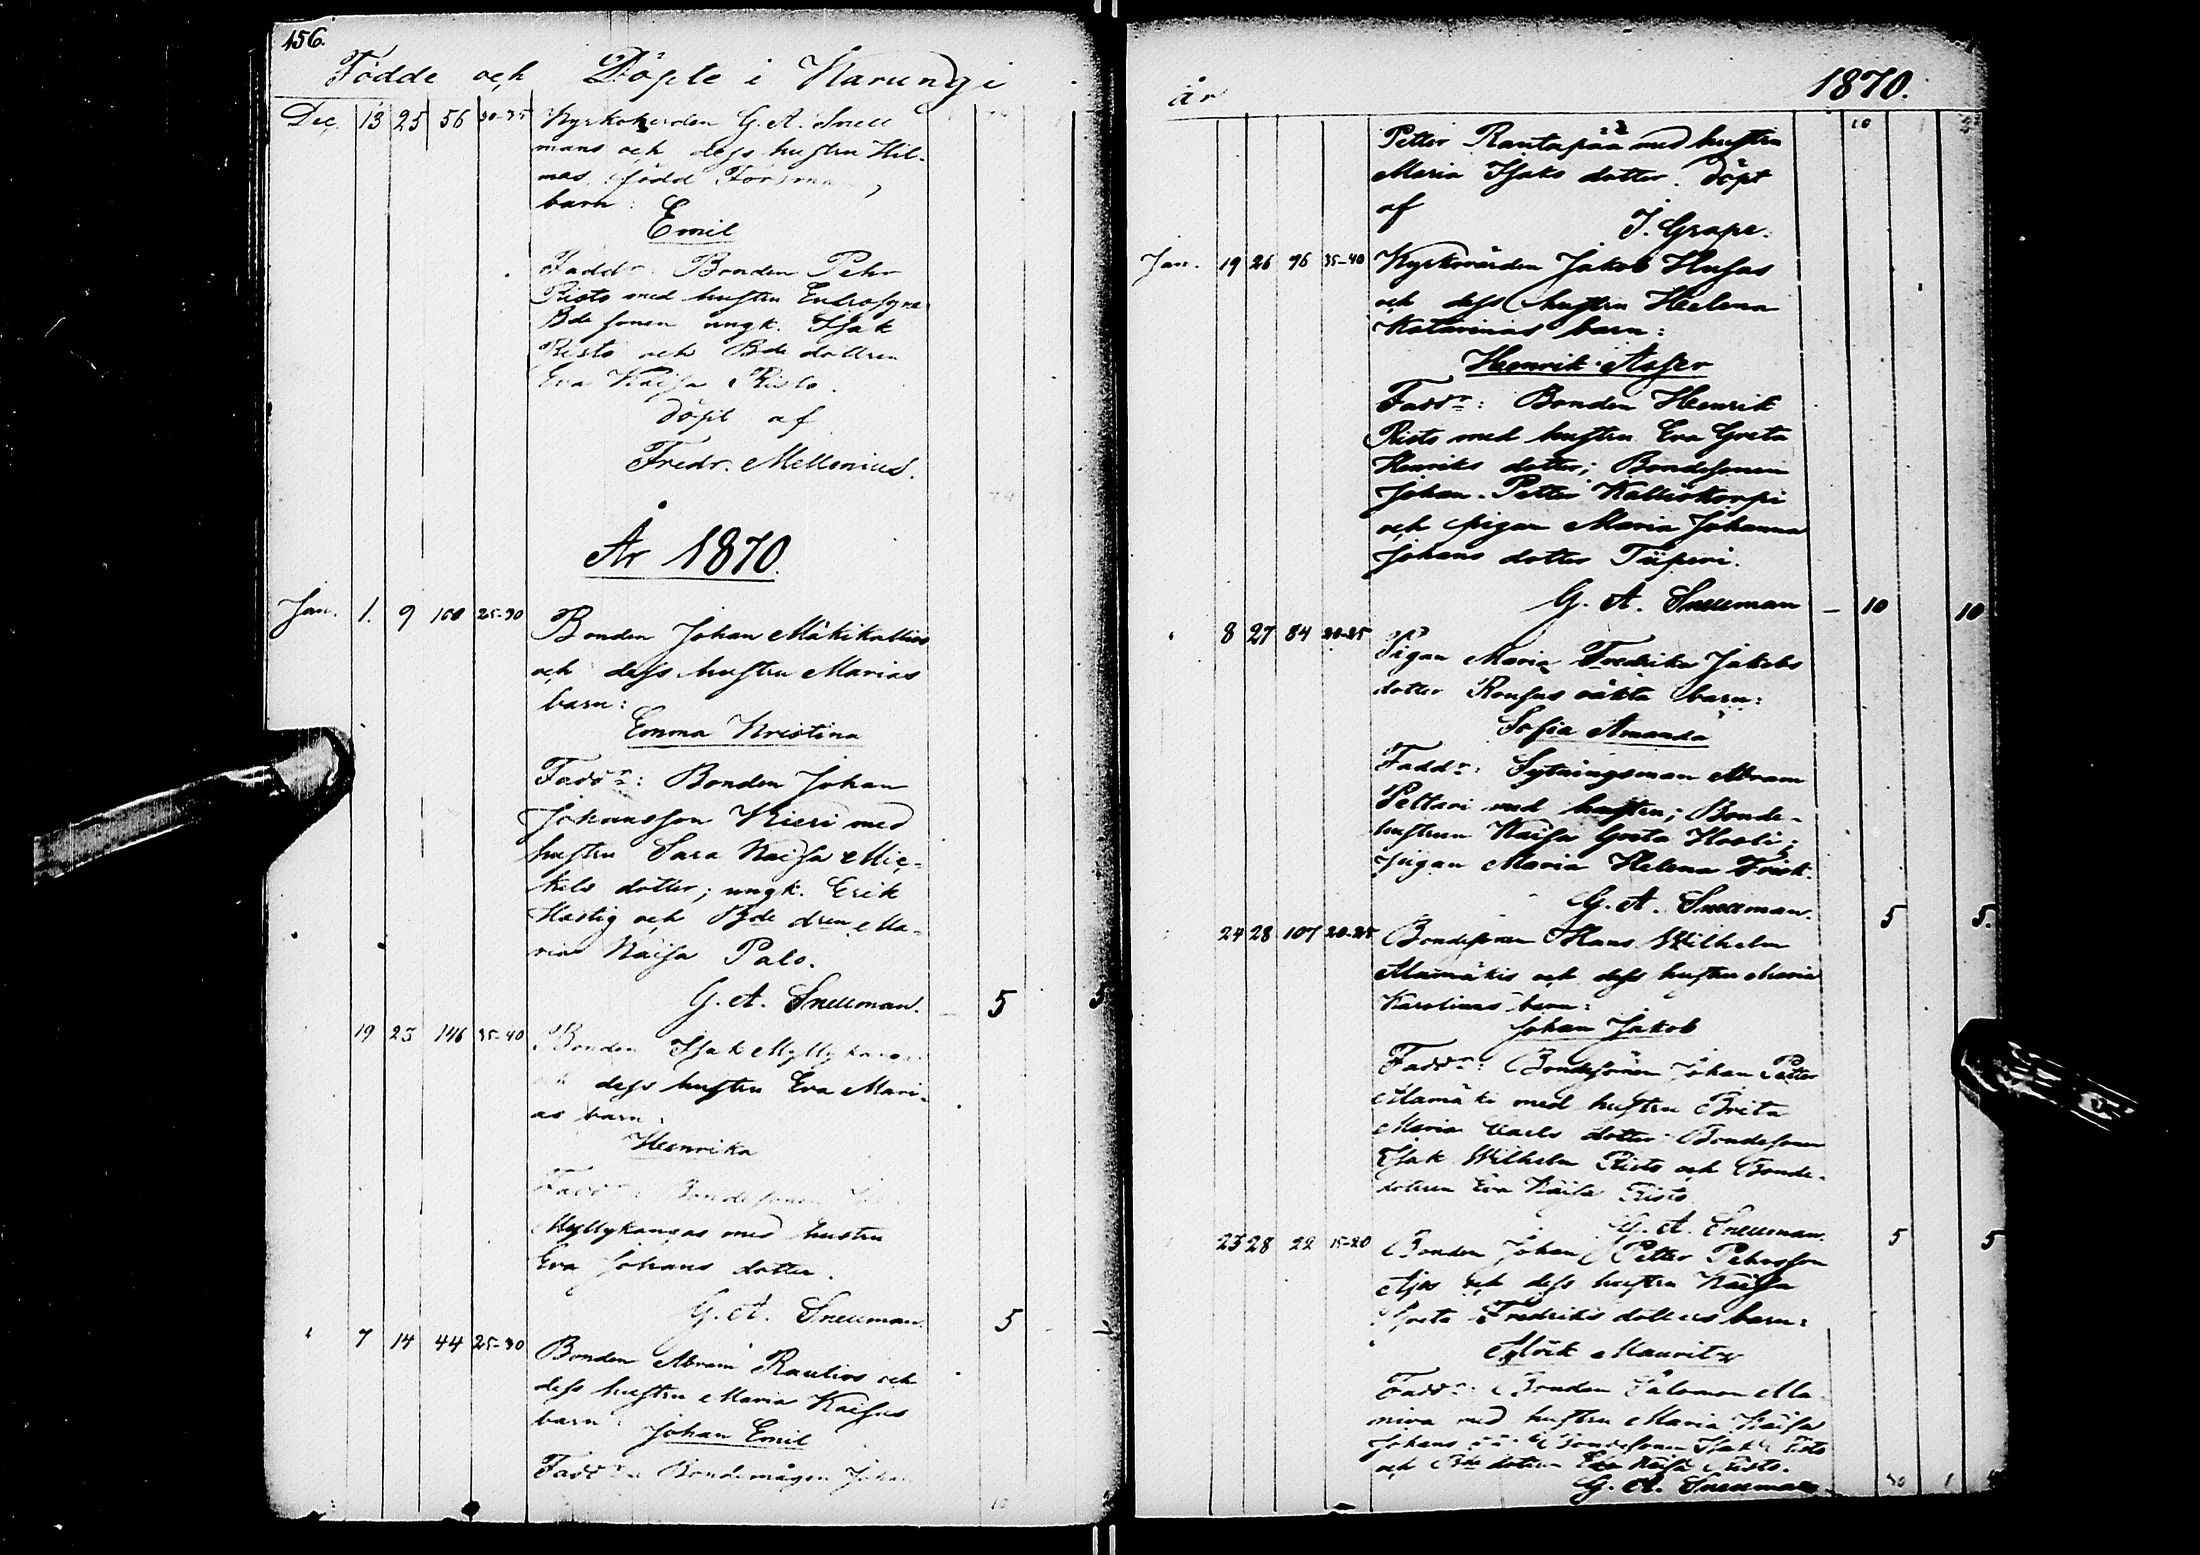 456.
Födde och Döpte i Karungi
Dec. 13 25 56 30-35 Kyrkoherden G. A. Snell
mans och dess hustru Hil-
mas, född Forsman,
barn:
Emil
Faddr: Bonden Pehr
Risto med hustru
Bde sonen ungk. Isak
Risto och Bde dottren
Eva Kaisa Risto.
döpt af
Fredr. Mellenius.
År 1870.
Jan. 1. 9 25-30 Bonden Johan Mäkikallios
och dess hustru Marias
barn:
Emma Kristina
Faddr: Bonden Johan
Johansson Kieri med
hustru Sara Kaisa Mic-
kels dotter; ungk. Erik
Hastig och Bde dren Ma-
ria Kaisa Palo.
G. A. Snellman. 5 5
19 23 146 35-40 Bonden Isak Myllykangas
och dess hustru Eva Mari-
as barn:
Henrika
Faddr: Bondesonen
Myllykangas med hustru
Eva Johans dotter.
G. A. Snellman. 5
7 14 44 25-30 Bonden Abram Rautios och
dess hustru Maria Kaisas
barn: Johan Emil
Faddr: Bondemågen Johan
år 1870.
Petter Rantapää med hustru
Maria Isaks dotter. Döpt
af
J. Grape.
Jan. 19 26 96 35-40 Kyrkovärden Jakob Husas
och dess hustru Helena
Katarinas barn:
Henrik
Faddr: Bonden Henrik
Risto med hustru Eva Greta
Henriks dotter; Bondesonen
Johan Petter Kalliokorpi
och pigan Maria Johanna
Johans dotter
G. A. Snellman – 10 10
8 27 84 20-25 Pigan Maria Fredrika Jakobs
dotter oäkta barn:
Sofia Amanda
Faddr: Sytningsman Abram
Peltari med hustru; Bonde-
hustrun Kaisa Greta
pigan Maria Helena Frisk.
G. A. Snellman. 5 5.
24 28 107 20-25 Bondesonen Hans Wilhelm
Alamäkis och dess hustru Maria
Karolinas barn:
Johan Jakob
Faddr: Bondesonen Johan Petter
Alamäki med hustru Brita
Maria Carls dotter Bondesonen
Isak Wilhelm Risto och Bonde-
dottren Eva Kaisa Risto.
G. A. Snellman. 5 5
23 28 22 15-20 Bonden Johan Petter Pehrsson
Ajos och dess hustru Kaisa
Greta Fredriks dotters barn:
Mauritz
Faddr: Bonden Salomon
med hustru Maria Kaisa
Johans Bondesonen Isak Risto
och Bde dottren Eva Kaisa Risto.
G. A. Snellman